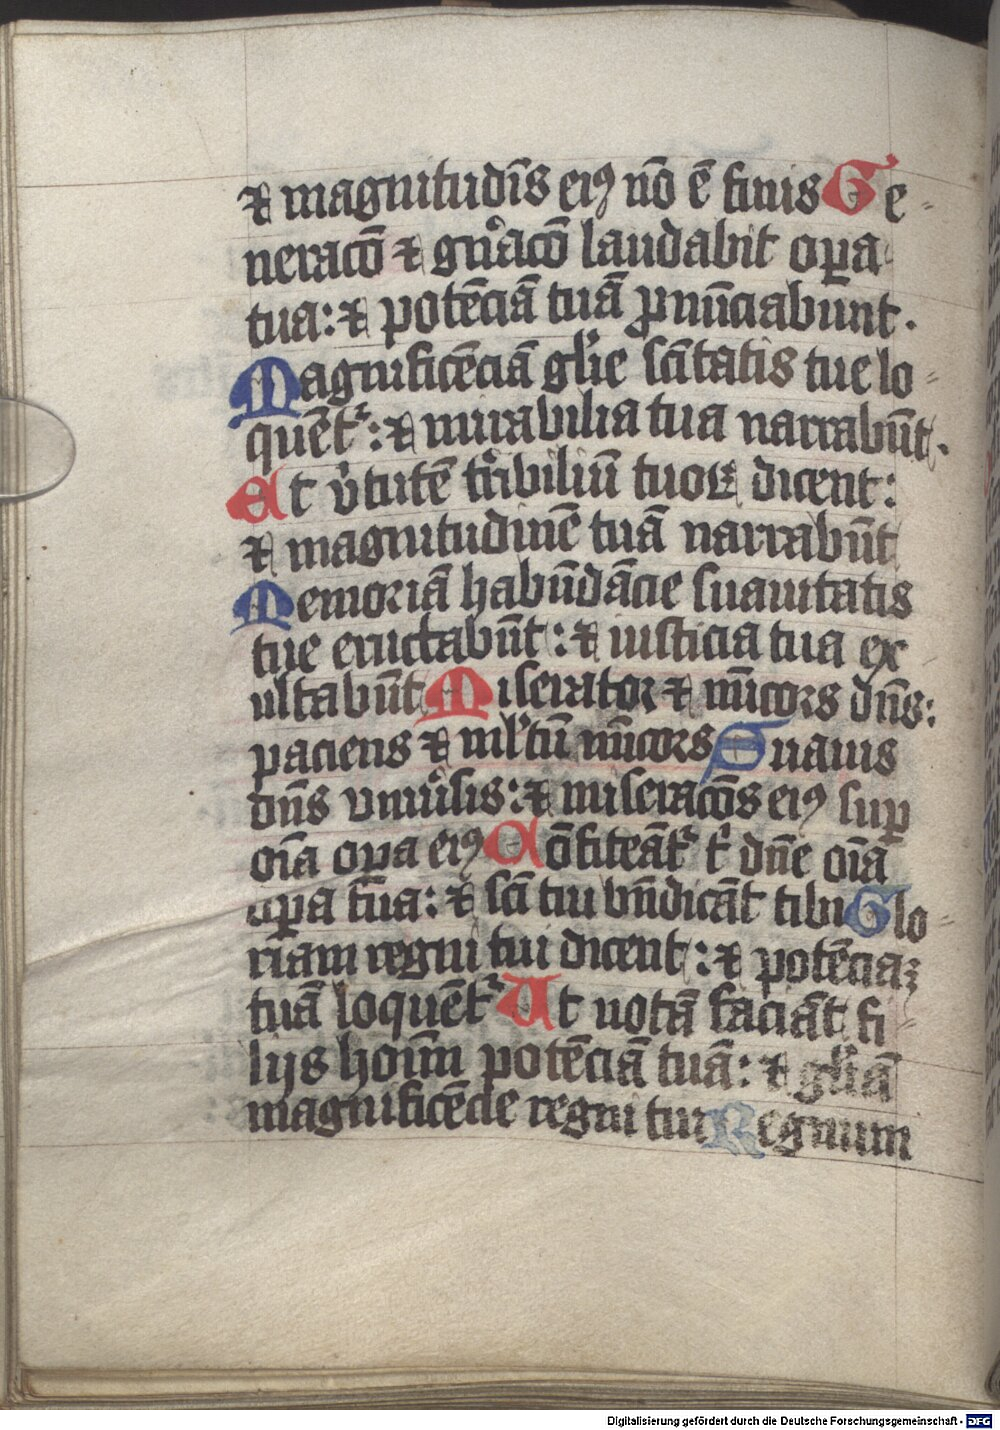 ⁊ magnitudīs eiꝰ nō ē finis Ge⸗
neracō ⁊ gn̄acō laudabit oꝑa
tua: ⁊ potēciā tuā ꝓnūciabunt.
Magnificēciā gl̄ie sc̄itatis tue lo⸗
quēt᷑: ⁊ mirabilia tua narrabūt.
Et v̓tutē tr̓ibiliū tuoꝝ dicent:
⁊ magnitudinē tuā narrabūt
Memoriā habūdācie suauitatis
tue eructabūt: ⁊ iusticia tua ex
ultabūt Miserator ⁊ mīcors dn̄s:
paciens ⁊ ml̓tū mīcors Suauis
dn̄s vniu̓sis: ⁊ miseracōs eiꝰ suꝑ
oīa oꝑa eiꝰ Cōfiteāt᷑ t̓ dn̄e oīa
oꝑa tua: ⁊ sc̄i tui bn̄dicāt tibi Glo⸗
riam regni tui dicent: ⁊ potēciaꝫ
tuā loquēt᷑ Ut notā faciāt fi⸗
lijs hoīm potēciā tuā: ⁊ gl̄iā
magnificēcie regni tui Regnum
Digitalisierung gefördert durch die Deutsche Forschungsgemeinschaft - DFG